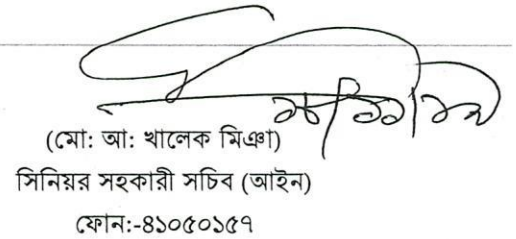 (মো: আ: খালেক মিঞা)
সিনিয়র সহকারী সচিব (আইন)
ফোন:-৪১০৫০১৫৭